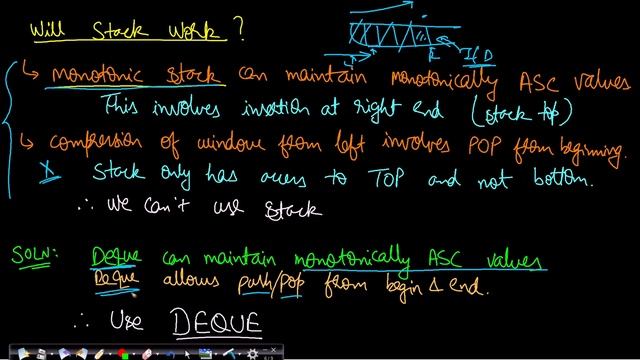 Will Stack Work?
L R I & D
↳ monotonic stack can maintain monotonically ASC values
This involves insertion at right end (stack top)
↳ compression of window from left involves POP from beginning.
X Stack only has access to TOP and not bottom.
∴ we can't use stack
SOLN: Deque can maintain monotonically ASC values
Deque allows push/pop from begin & end.
∴ Use DEQUE